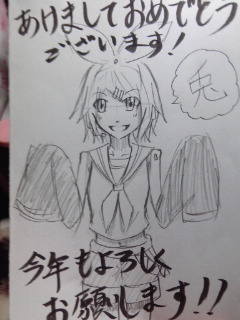 あけましておめでとう
ございます!
兎
今年もよろしく
お願いします!!